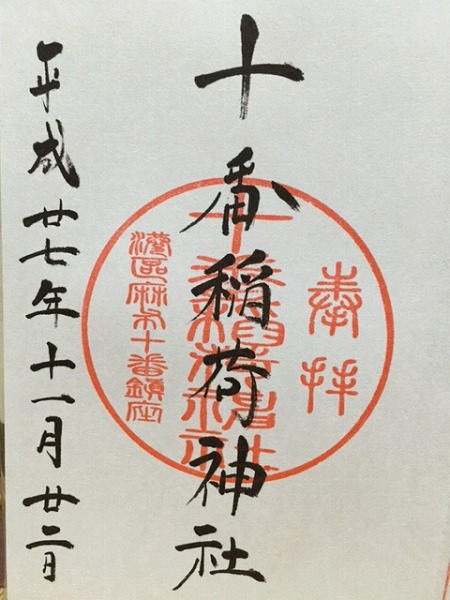 奉拝
十番稲荷神社
十番稲荷神社
港區麻布十番鎮座
平成廿七年十一月廿二日